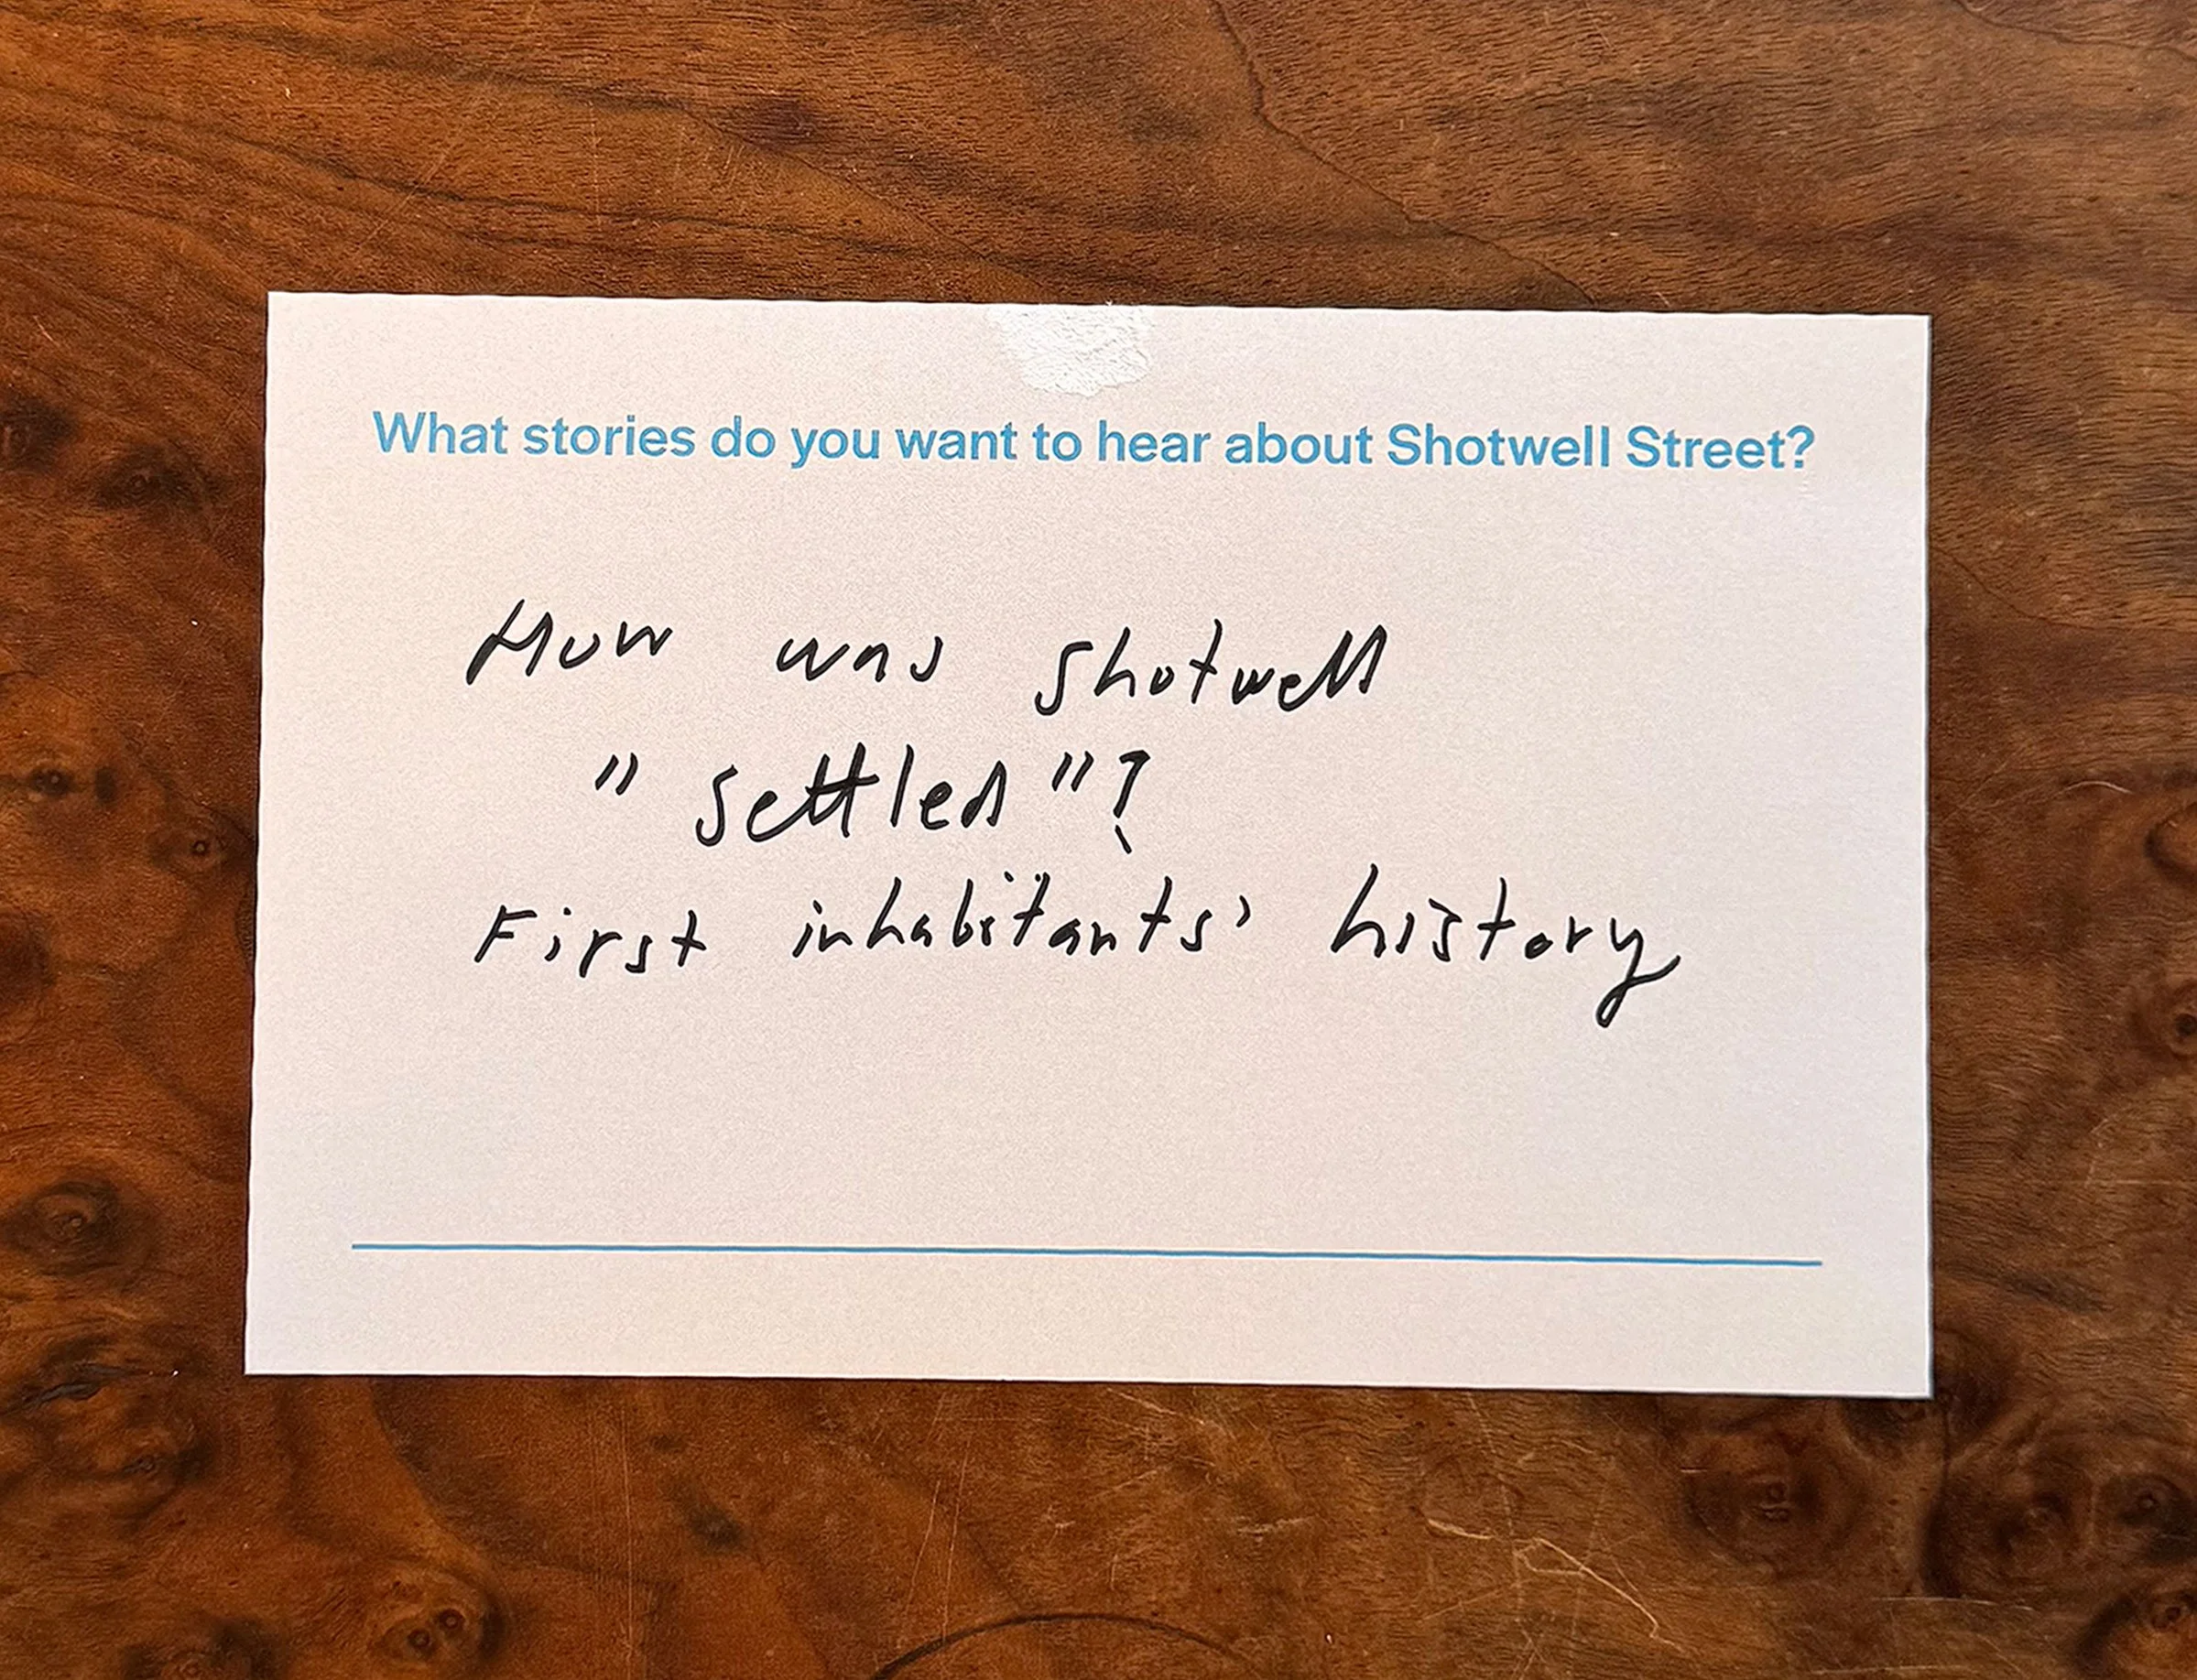 What stories do you want to hear about Shotwell Street?
How was Shotwell
"settled"?
First inhabitants' history